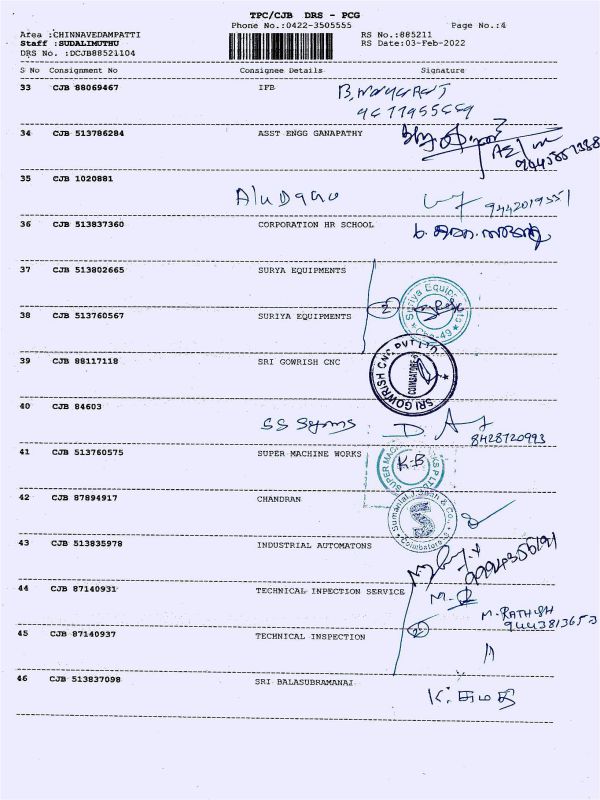 TPC/CJB DRS - PCG
Phone No.:0422-3505555 Page No.:4
Area :CHINNAVEDAMPATTI RS No.:885211
Staff :SUDALIMUTHU RS Date:03-Feb-2022
DRS No. :DCJB88521104
S No Consignment No Consignee Details Signature
33 CJB 88069467 IFB
34 CJB 513786284 ASST ENGG GANAPATHY
35 CJB 1020881
36 CJB 513837360 CORPORATION HR SCHOOL
37 CJB 513802665 SURYA EQUIPMENTS
38 CJB 513760567 SURIYA EQUIPMENTS 2
Suriya Equipments
CBE-49
39 CJB 88117118 SRI GOWRISH CNC
SRI GOWRISH CNC PVT LTD
COIMBATORE
40 CJB 84603
8428720993
41 CJB 513760575 SUPER MACHINE WORKS
K-B
42 CJB 87894917 CHANDRAN
S
Coimbatore
43 CJB 513835978 INDUSTRIAL AUTOMATONS
44 CJB 87140931 TECHNICAL INPECTION SERVICE
M. RATHISH
9443813653
45 CJB 87140937 TECHNICAL INSPECTION 2
46 CJB 513837098 SRI BALASUBRAMANAI
K. சுமதி